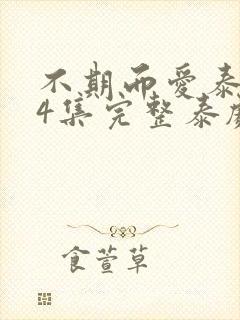 不期而爱泰
4集完整泰
食萱草